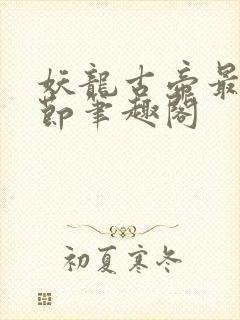 妖龍古帝最
節筆趣閣
初夏寒冬